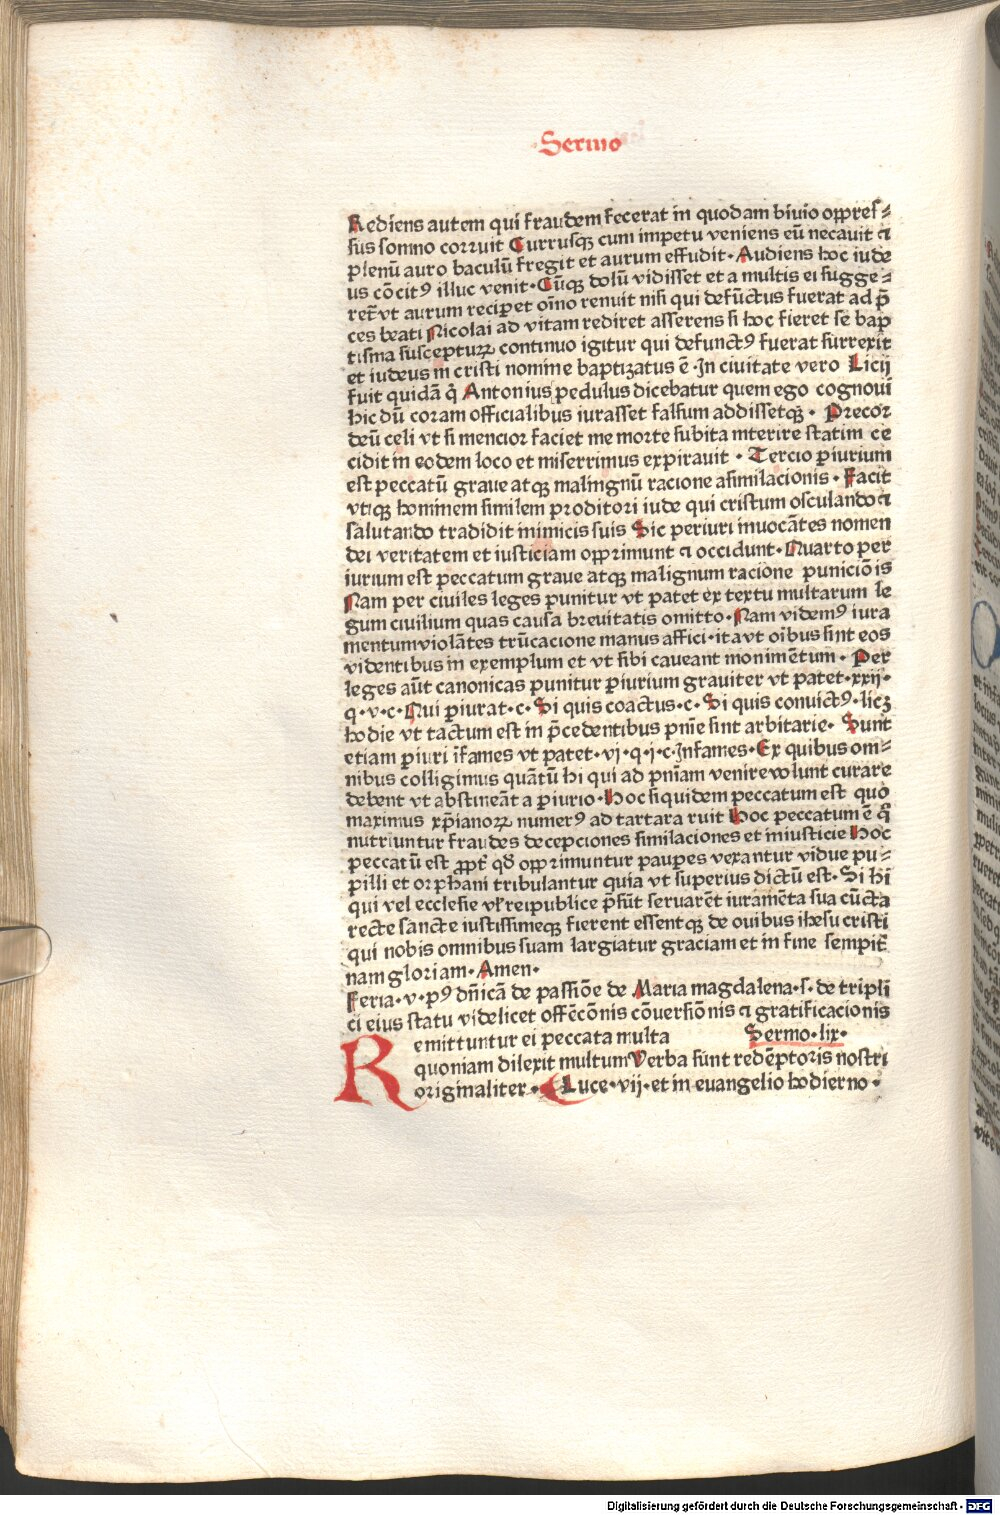 Sermo
Rediens autem qui fraudem fecerat in quodam biuio oppres⸗
sus somno corruit Currusqꝫ cum impetu veniens eū necauit ⁊
plenū auro baculū fregit et aurum effudit· Audiens hoc iude
us cōcitꝰ illuc venit· Cūqꝫ dolū vidisset et a multis ei sugge⸗
ret̄ vt aurum reciꝑet oīno renuit nisi qui defūctus fuerat ad p̄
ces beati Nicolai ad vitam rediret asserens si hoc fieret se bap
tisma suscepturꝝ continuo igitur qui defunctꝰ fuerat surrexit
et iudeus in cristi nomine baptizatus ē· In ciuitate vero Licij
fuit quidā q̄ Antonius pedulus dicebatur quem ego cognoui
hic dū coram officialibus iurasset falsum addissetqꝫ · Precor
deū celi vt si mencior faciet me morte subita interire statim ce
cidit in eodem loco et miserrimus expirauit · Tercio ꝑiurium
est peccatū graue atqꝫ malingnū racione asimilacionis · Facit
vtiqꝫ hominem similem proditori iude qui cristum osculando ⁊
salutando tradidit inimicis suis Sic periuri inuocātes nomen
dei veritatem et iusticiam opprimunt ⁊ occidunt· Quarto per
iurium est peccatum graue atqꝫ malignum racione puniciōis
Nam per ciuiles leges punitur vt patet ex textu multarum le
gum ciuilium quas causa breuitatis omitto· Nam videmꝰ iura
mentum violātes trūcacione manus affici· ita vt oībus sint eos
videntibus in exemplum et vt sibi caueant monimētum· Per
leges aūt canonicas punitur ꝑiurium grauiter vt patet·xxij·
q·v·c·Qui ꝑiurat·c·Si quis coactus·c·Si quis conuictꝰ·licꝫ
hodie vt tactum est in p̄cedentibus pn̄ie sint arbitarie· Sunt
etiam ꝑiuri īfames vt patet·vj·q·j·c·Infames· Ex quibus om⸗
nibus colligimus quātū hi qui ad pn̄iam venire volunt curare
debent vt abstineāt a ꝑiurio· Hoc siquidem peccatum est quo
maximus xp̄ianoꝝ numerꝰ ad tartara ruit Hoc peccatum ē q̄
nutriuntur fraudes decepciones similaciones et iniusticie Hoc
peccatū est ꝓpt̄ qd̄ opprimuntur pauꝑes vexantur vidue pu⸗
pilli et orphani tribulantur quia vt superius dictū est· Si hi
qui vel ecclesie vl̄ reipublice p̄sūt seruarēt iuramēta sua cūcta
recte sancte iustissimeqꝫ fierent essentqꝫ de ouibus ihesu cristi
qui nobis omnibus suam largiatur graciam et in fine sempit̄
nam gloriam· Amen·
Feria·v·pꝰ dn̄icā de passiōe de Maria magdalena·s·de tripli
ci eius statu videlicet offēcōnis cōuersiōnis ⁊ gratificacionis
Remittuntur ei peccata multa Sermo·lix·
quoniam dilexit multum Verba sunt redēptoris nostri
originaliter· Luce·vij·et in euangelio hodierno·
Digitalisierung gefördert durch die Deutsche Forschungsgemeinschaft - DFG